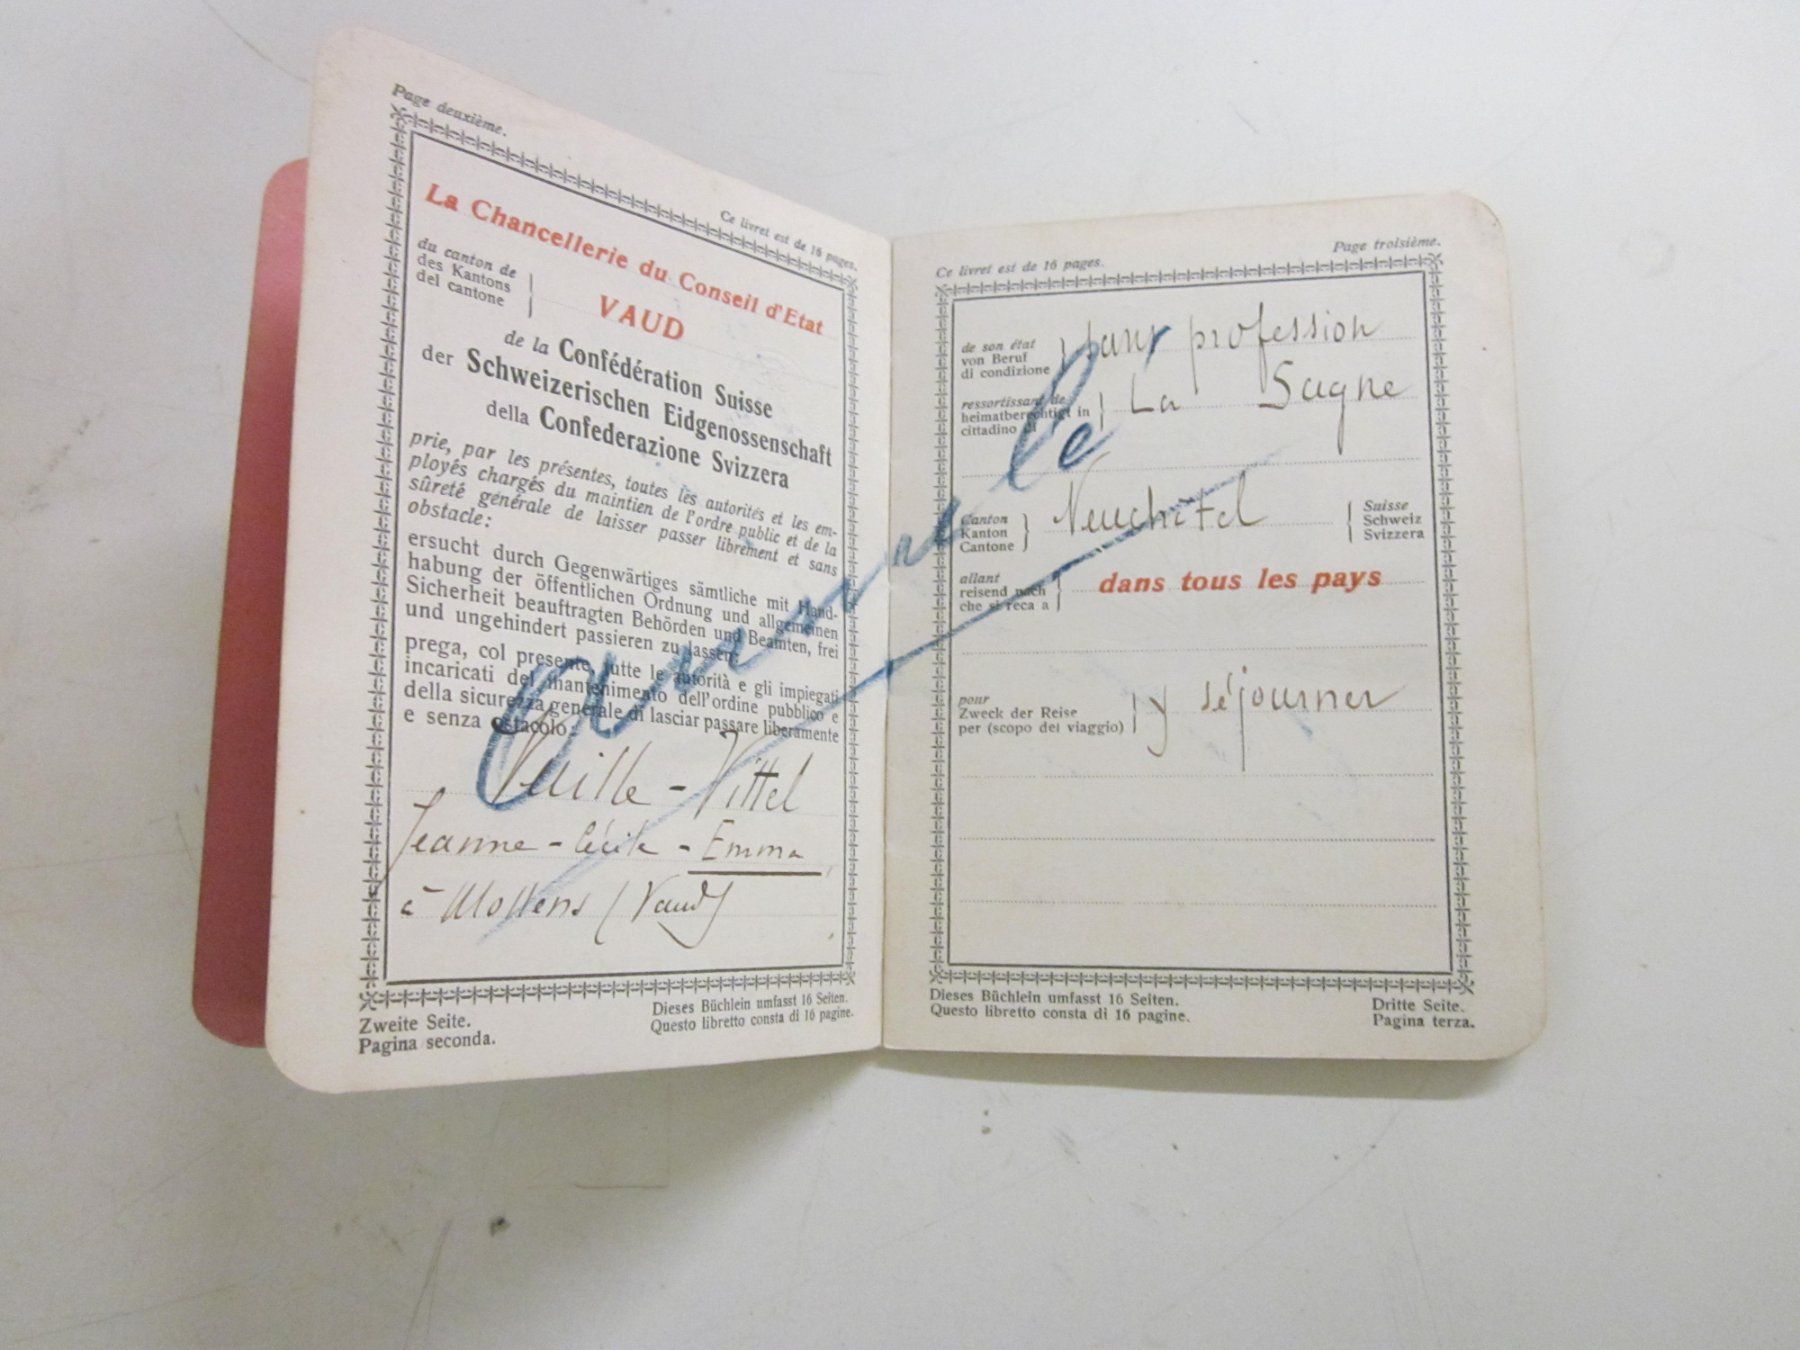 Page deuxième.
Ce livret est de 16 pages.
La Chancellerie du Conseil d'Etat
du canton de
des Kantons
del cantone
VAUD
de la Confédération Suisse
der Schweizerischen Eidgenossenschaft
della Confederazione Svizzera
prie, par les présentes, toutes les autorités et les em-
ployés chargés du maintien de l'ordre public et de la
sûreté générale de laisser passer librement et sans
obstacle:
ersucht durch Gegenwärtiges sämtliche mit Hand-
habung der öffentlichen Ordnung und allgemeinen
Sicherheit beauftragten Behörden und Beamten, frei
und ungehindert passieren zu lassen:
prega, col presente, tutte le autorità e gli impiegati
incaricati del mantenimento dell'ordine pubblico e
della sicurezza generale di lasciar passare liberamente
e senza ostacolo:
Vuille - Vittel
Jeanne - Cécile - Emma
à Mollens (Vaud)
Zweite Seite.
Pagina seconda.
Dieses Büchlein umfasst 16 Seiten.
Questo libretto consta di 16 pagine.
Annulé
Ce livret est de 16 pages.
Page troisième.
de son état
von Beruf
di condizione
sans profession
ressortissant de
heimatberechtigt in
cittadino di
La Sagne
Canton
Kanton
Cantone
Neuchâtel
Suisse
Schweiz
Svizzera
allant
reisend nach
che si reca a
dans tous les pays
pour
Zweck der Reise
per (scopo del viaggio)
y séjourner
Dieses Büchlein umfasst 16 Seiten.
Questo libretto consta di 16 pagine.
Dritte Seite.
Pagina terza.